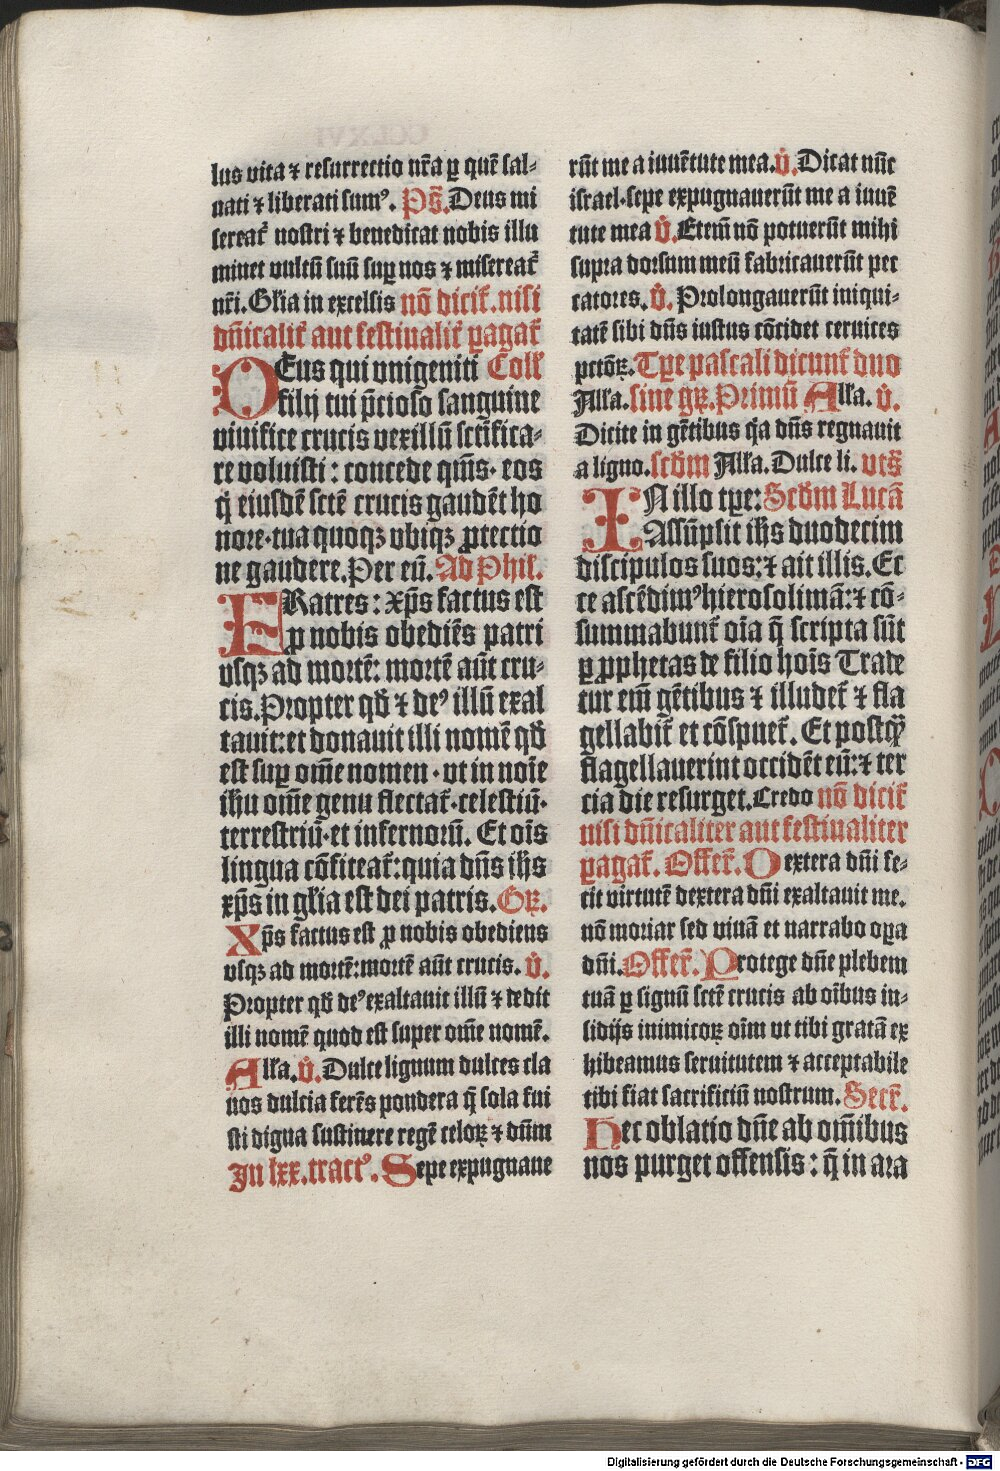 lus vita ⁊ resurrectio nr̄a ꝑ quē sal-
uati ⁊ liberati sumꝰ. Ps̄. Deus mi
sereat᷑ nostri ⁊ benedicat nobis illu
minet vultū suū suꝑ nos ⁊ misereat᷑
nr̄i. Gl̄ia in excelsis nō dicit᷑. nisi
dn̄icalit᷑ aut festiualit᷑ ꝑagat᷑
DEus qui vnigeniti Coll̄
filij tui p̄cioso sanguine
viuifice crucis vexillū sctīfica-
re voluisti: concede qm̄s. eos
q̄ eiusdē sctē crucis gaudēt ho
nore. tua quoqꝫ vbiqꝫ ꝓtectio
ne gaudere. Per eū. Ad Phil.
FRatres: xp̄s factus est
ꝓ nobis obediēs patri
vsqꝫ ad mortē: mortē aūt cru-
cis. Propter qd̄ ⁊ deꝰ illū exal
tauit: et donauit illi nomē qd̄
est suꝑ om̄e nomen. vt in noīe
ih̄u om̄e genu flectat᷑. celestiū.
terrestriū. et infernorū. Et oīs
lingua cōfiteat᷑: quia dn̄s ih̄s
xp̄s in gl̄ia est dei patris. Gꝝ.
Xp̄s factus est ꝓ nobis obediens
vsqꝫ ad mortē: mortē aūt crucis. v̄.
Propter qd̄ deꝰ exaltauit illū ⁊ dedit
illi nomē quod est super om̄e nomē.
All̄a. v̄. Dulce lignum dulces cla
uos dulcia ferēs pondera q̄ sola fui
sti digna sustinere regē celoꝝ ⁊ dn̄m
In lxx. tractꝰ. Sepe expugnaue
rūt me a iuuētute mea. v̄. Dicat nūc
israel. sepe expugnauerūt me a iuuē
tute mea v̄. Etem̄ nō potuerūt mihi
supra dorsum meū fabricauerūt pec
catores. v̄. Prolongauerūt iniqui-
tatē sibi dn̄s iustus cōcidet ceruices
pctōꝝ. Tꝑe pascali dicunt᷑ duo
All̄a. sine gꝝ. Primū All̄a. v̄.
Dicite in gētibus qa dn̄s regnauit
a ligno. scd̄m All̄a. Dulce li. vts̄
IN illo tꝑe: Scd̄m Lucā
Assūpsit ih̄s duodecim
discipulos suos: ⁊ ait illis. Ec
ce ascēdimꝰ hierosolimā: ⁊ cō-
summabunt᷑ oīa q̄ scripta sūt
ꝑ ꝓphetas de filio hoīs Trade
tur em̄ gētibus ⁊ illudet᷑ ⁊ fla
gellabit᷑ et cōspuet᷑. Et postqꝫ̄
flagellauerint occidēt eū: ⁊ ter
cia die resurget. Credo nō dicit᷑
nisi dn̄icaliter aut festiualiter
ꝑagat᷑. Offer̄. Dextera dn̄i fe-
cit virtutē dextera dn̄i exaltauit me.
nō moriar sed viuā et narrabo oꝑa
dn̄i. Offer̄. Protege dn̄e plebem
tuā ꝑ signū sctē crucis ab oībus in-
sidijs inimicoꝝ oīm ut tibi gratā ex
hibeamus seruitutem ⁊ acceptabile
tibi fiat sacrificiū nostrum. Secr̄.
Hec oblatio dn̄e ab om̄ibus
nos purget offensis: q̄ in ara
Digitalisierung gefördert durch die Deutsche Forschungsgemeinschaft - DFG